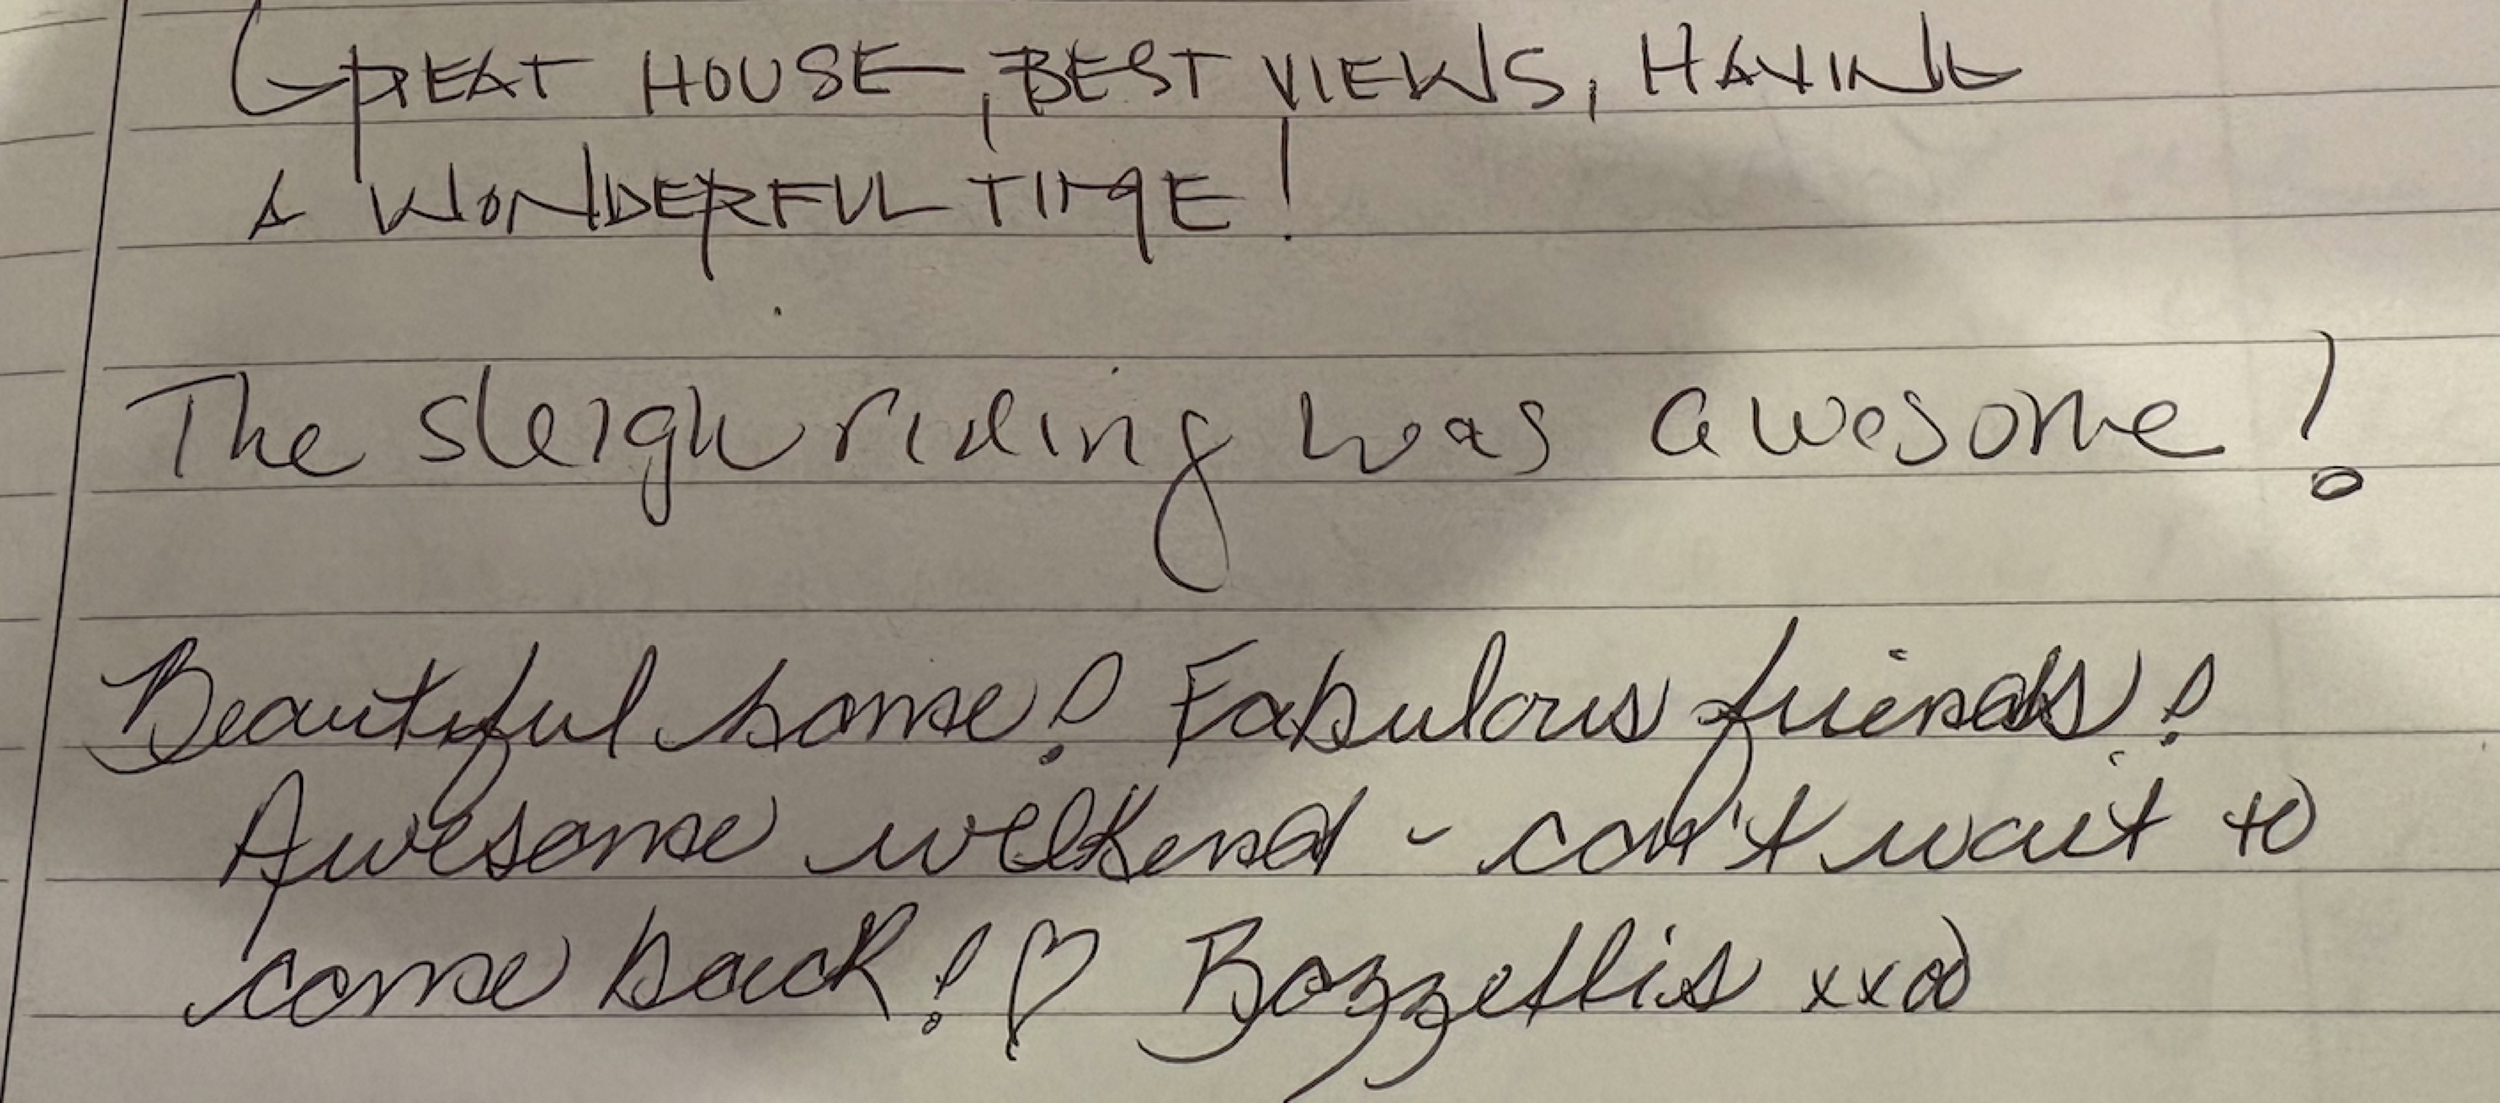 GREAT HOUSE, BEST VIEWS, HAVING
A WONDERFUL TIME!
The sleigh riding was awesome!
Beautiful home! Fabulous friends!
Awesome weekend - can't wait to
come back! ♡ Bozzellis xxoo